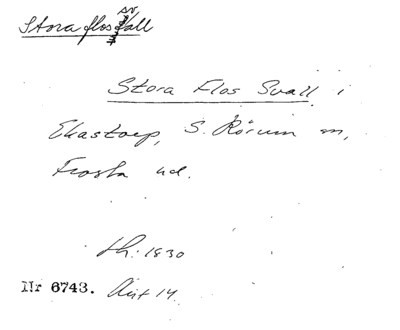 Stora flossvall
Stora Flos Svall i
Ekastorp, S. Rörum sn,
Frosta hd.
lh. 1830
Nr 6743. Akt 14.